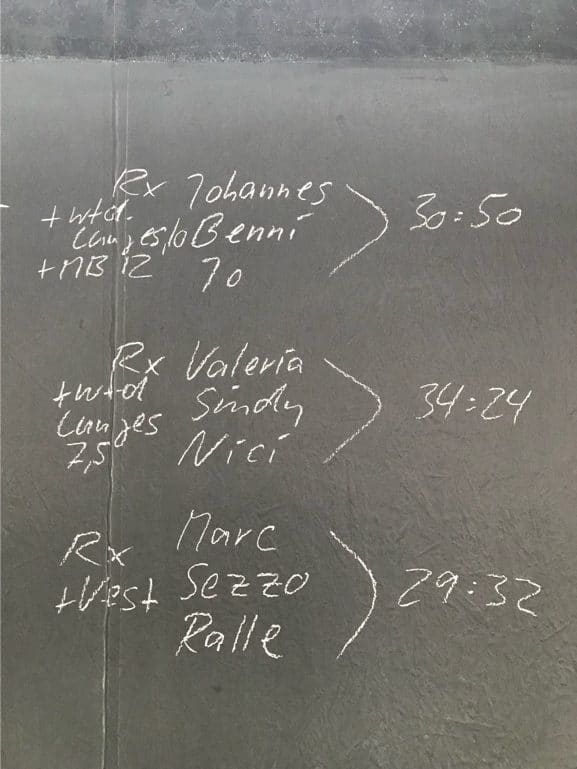 Rx Johannes
+wtd. Benni
Lunges 10
+MB 12 Jo
30:50
Rx Valeria
+wtd Sindy
Lunges
7,5 Nici
34:24
Rx Marc
+Vest Sezzo
Ralle
29:32